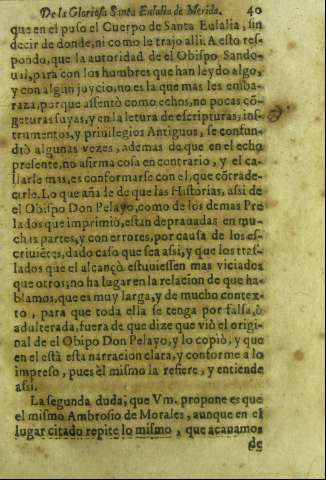 De la Gloriosa Santa Eulalia de Merida. 40
que en el puso el Cuerpo de Santa Eulalia, sin
decir de donde, ni como le trajo alli. A esto res-
pondo, que la autoridad de el Obispo Sando-
ual, para con los hombres que han leydo algo,
y con algun juycio, no es la que mas les emba-
raza, porque assentò como echos, no pocas cõ-
geturas suyas, y en la letura de escripturas, ins-
trumentos, y priuilegios Antiguos, se confun-
diò algunas vezes, ademas de que en el echo
presente, no afirma cosa en contrario, y el ca-
llarle mas, es conformarse con el, que cõtrade-
cirle. Lo que añade de que las Historias, assi de
el Obispo Don Pelayo, como de los demas Pre
lados que imprimiò, estan deprauadas en mu-
chas partes, y con errores, por causa de los es-
criuiẽtes, dado caso que sea assi, y que los tras-
lados que el alcançò estuuiessen mas viciados
que otros; no ha lugar en la relacion de que ha-
blamos, que es muy larga, y de mucho contex-
to, para que toda ella se tenga por falsa, ò
adulterada, fuera de que dize que viò el origi-
nal de el Obipo Don Pelayo, y lo copiò, y que
en el està esta narracion clara, y conforme a lo
impreso, pues èl mismo la refiere, y entiende
assi.
La segunda duda, que Vm. propone es que
el mismo Ambrosio de Morales, aunque en el
lugar citado repite lo mismo, que acauamos
de